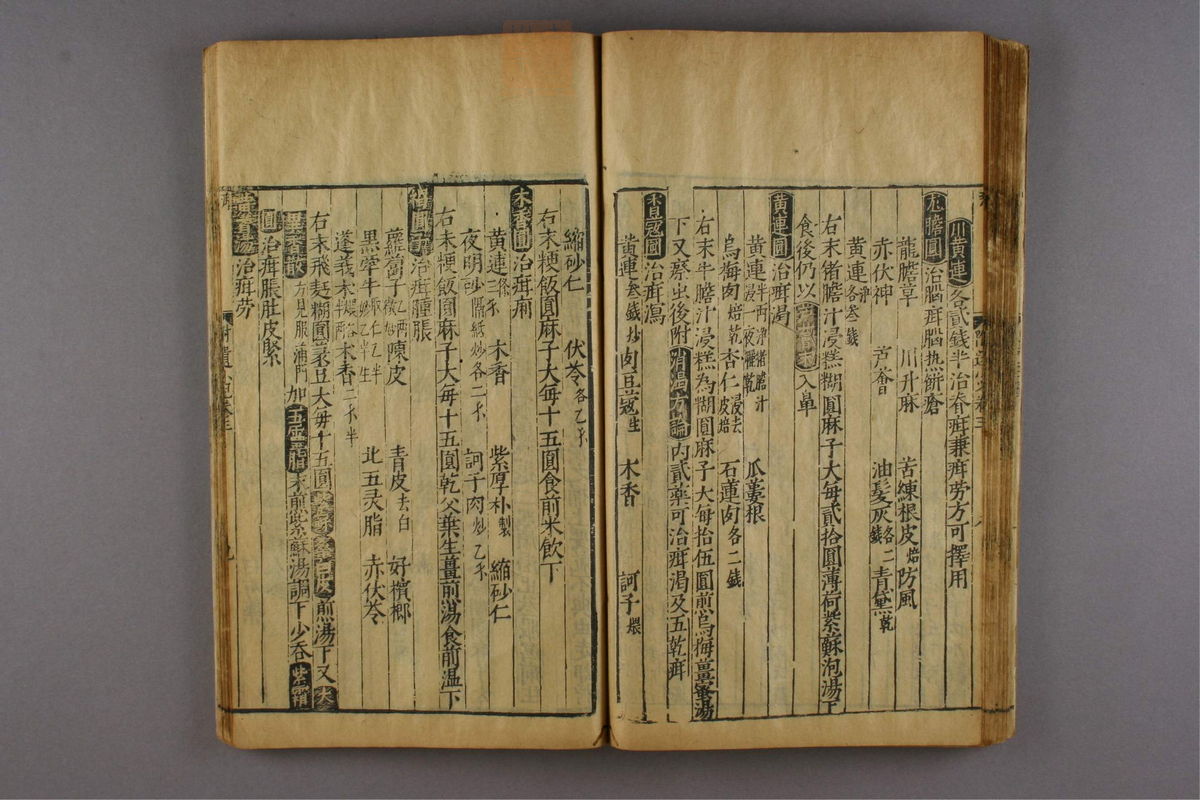 川黄連 各貳錢半治脊疳兼疳劳方可擇用
龍膽圓 治脳疳脳热餅瘡
龍膽草 川升麻 苦練根皮焙 防風
赤伏神 芦薈 油髮灰各二錢 青黛乾
黄連净各叁錢
右末猪膽汁浸糕糊圓麻子大每貳拾圓薄荷紫蘇泡湯下
食後仍以 入鼻
黄連圓 治疳渴
黄連半两净猪膽汁浸一夜曬乾 瓜蔞根
烏梅肉焙乾 杏仁浸去皮焙 石蓮肉各二錢
右末牛膽汁浸糕為糊圓麻子大每拾伍圓煎烏梅薑蜜湯
下又磨出後附 消渴方論 内貳藥可治疳渴及五乾疳
香蔻圓 治疳瀉
黄連叁錢炒 肉豆蔻生 木香 訶子煨
縮砂仁 伏苓各乙錢
右末粳飯圓麻子大每十五圓食前米飲下
木香圓 治疳痢
黄連三錢 木香 紫厚朴製 縮砂仁
夜明砂隔紙炒各二錢 訶子肉炒乙錢
右末粳飯圓麻子大每十五圓乾艾葉生薑煎湯食前温下
褐圓子 治疳腫脹
蘿蔔子乙两微炒 陳皮 青皮去白 好檳榔
黑牽牛 北五灵脂 赤伏苓
蓬莪术煨各半两 木香二錢半
右末飛麪糊圓菉豆大每十五圓 煎湯下又
加五灵脂末煎紫蘇湯調下少吞 紫霜
圓 治疳脹肚皮緊
黄耆湯 治疳劳